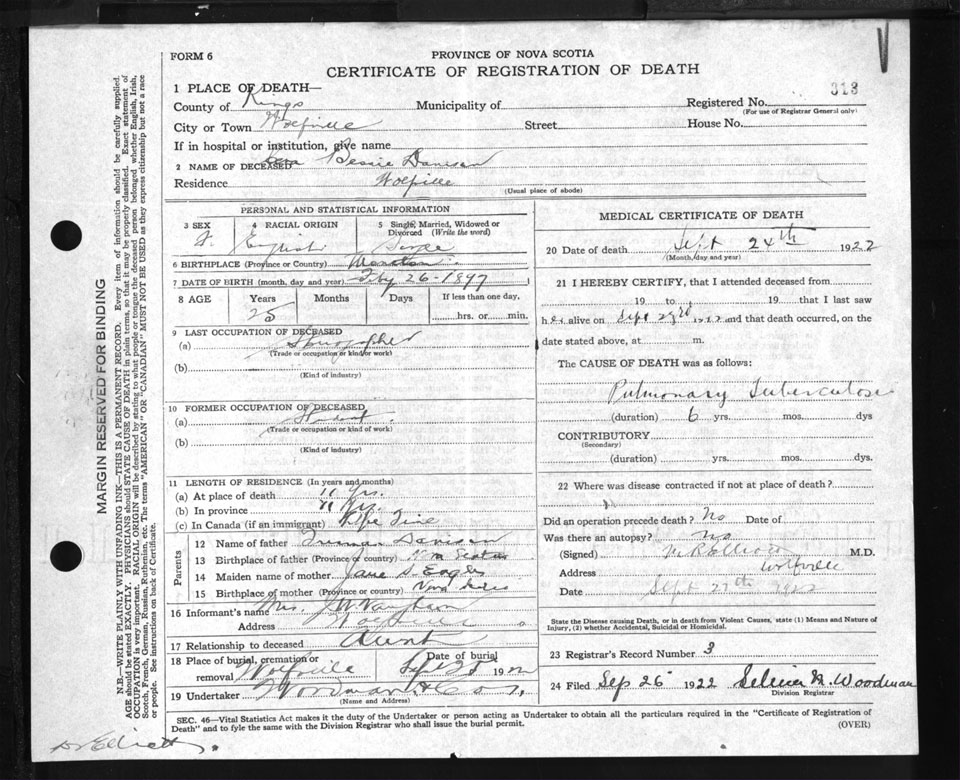 FORM 6
PROVINCE OF NOVA SCOTIA
CERTIFICATE OF REGISTRATION OF DEATH
318
1 PLACE OF DEATH—
County of Kings Municipality of Registered No.
(For use of Registrar General only)
City or Town Wolfville Street House No.
If in hospital or institution, give name
2 NAME OF DECEASED Bessie Davison
Residence Wolfville
(Usual place of abode)
PERSONAL AND STATISTICAL INFORMATION
3 SEX 4 RACIAL ORIGIN 5 Single, Married, Widowed or Divorced (Write the word)
F. English Single
6 BIRTHPLACE (Province or Country) Moncton
7 DATE OF BIRTH (month, day and year) 26-1897
8 AGE Years Months Days If less than one day,
25 hrs. or min.
9 LAST OCCUPATION OF DECEASED
(a) Stenographer
(Trade or occupation or kind of work)
(b)
(Kind of industry)
10 FORMER OCCUPATION OF DECEASED
(a) Student
(Trade or occupation or kind of work)
(b)
(Kind of industry)
11 LENGTH OF RESIDENCE (In years and months)
(a) At place of death 11 Yrs.
(b) In province 11 Yrs.
(c) In Canada (if an immigrant) Life Time
Parents
12 Name of father Truman Davison
13 Birthplace of father (Province or Country) Nova Scotia
14 Maiden name of mother Jane S. Eagles
15 Birthplace of mother (Province or Country) Nova Scotia
16 Informant's name Mrs. J W Vaughan
Address Wolfville
17 Relationship to deceased Aunt
18 Place of burial, cremation or removal Wolfville Date of burial Sept 25 1922
19 Undertaker Woodman & Co.,
(Name and Address)
MEDICAL CERTIFICATE OF DEATH
20 Date of death Sept 24th 1922
(Month, day and year)
21 I HEREBY CERTIFY, that I attended deceased from
19 to 19 that I last saw
her alive on Sept 23rd 1922 and that death occurred, on the
date stated above, at m.
The CAUSE OF DEATH was as follows:
Pulmonary Tuberculosis
(duration) 6 yrs. mos. dys
CONTRIBUTORY
(Secondary)
(duration) yrs. mos. dys.
22 Where was disease contracted if not at place of death?
Did an operation precede death? No Date of
Was there an autopsy? No
(Signed) M R Elliott M.D.
Address Wolfville
Date Sept 27th 1922
State the Disease causing Death, or in death from Violent Causes, state (1) Means and Nature of
Injury, (2) whether Accidental, Suicidal or Homicidal.
23 Registrar's Record Number 3
24 Filed Sep 26 1922 Woodman
Division Registrar
SEC. 46—Vital Statistics Act makes it the duty of the Undertaker or person acting as Undertaker to obtain all the particulars required in the "Certificate of Registration of
Death" and to fyle the same with the Division Registrar who shall issue the burial permit. (OVER)
Dr Elliott
MARGIN RESERVED FOR BINDING
N.B.—WRITE PLAINLY WITH UNFADING INK—THIS IS A PERMANENT RECORD. Every item of information should be carefully supplied.
AGE should be stated EXACTLY. PHYSICIANS should STATE CAUSE OF DEATH in plain terms, so that it may be properly classified. Exact statement of
OCCUPATION is very important. RACIAL ORIGIN will be described by stating to what people or tongue the deceased person belonged, whether English, Irish,
Scotch, French, German, Russian, Ruthenian, etc. The terms "AMERICAN" OR "CANADIAN" MUST NOT BE USED as they express citizenship but not a race
or people. See instructions on back of Certificate.